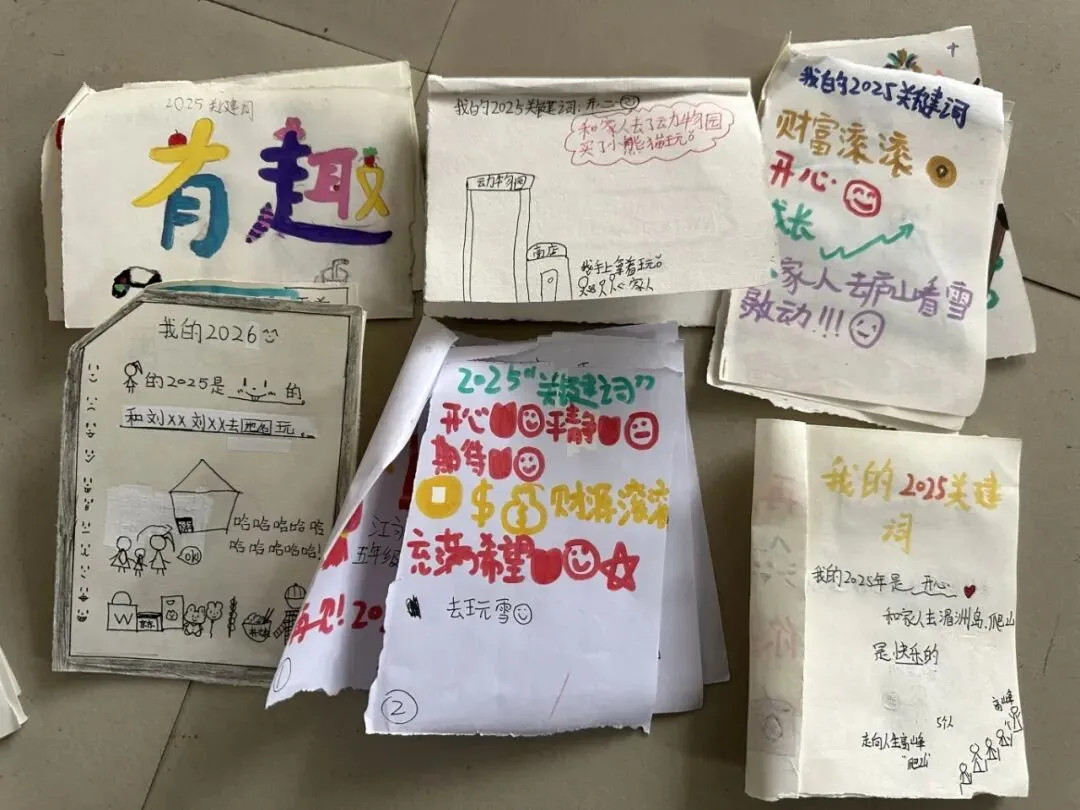 2025关建词
有趣
我的2025关建词:开心
和家人去了动物园
买了小熊猫玩。
动物园
商店
我手上拿着玩。
家人
我的2025关键词
财富滚滚
开心
成长
家人去庐山看雪
激动!!!
我的2026
的2025是 的
和刘XX刘XX去 玩。
哈哈哈哈哈
哈哈哈哈哈!
OK!
江
五年级
再见!202
①
2025“关键词”
开心 平静
期待
$ 财源滚滚
充满希望
去玩雪
②
我的2025关建
词
我的2025年是 开心
和家人去湄洲岛,爬山
是快乐的
高峰
5个人
走向人生高峰
“爬山”